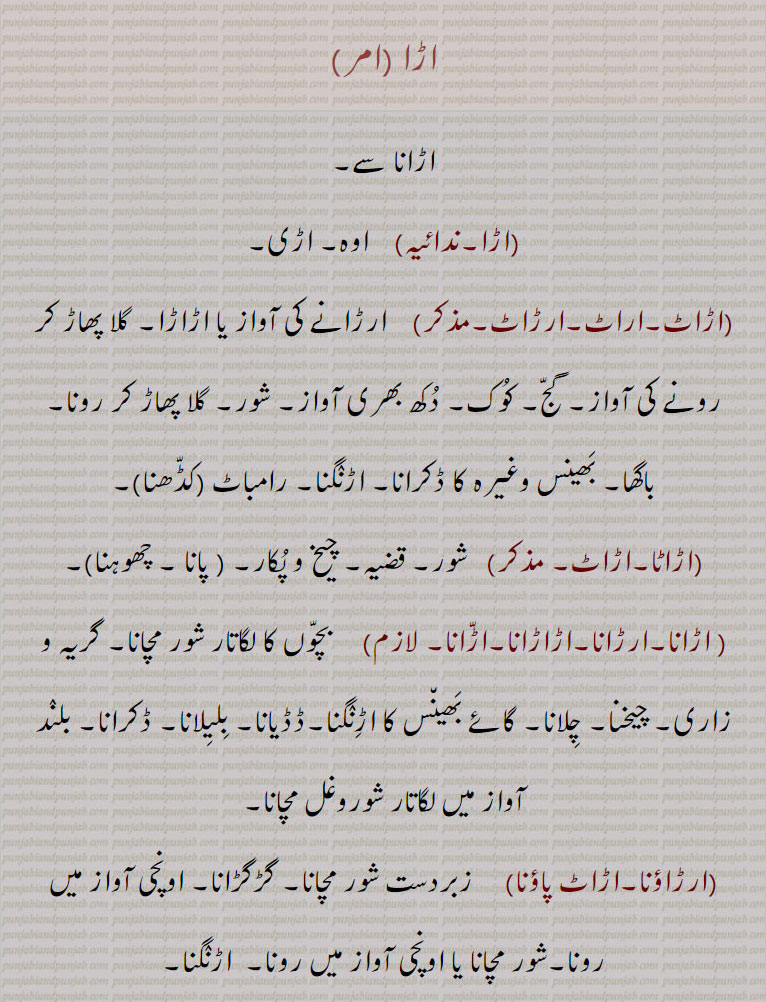 اڑا (امر)
اڑانا سے۔
(اڑا۔ندائیہ) اوہ۔ اڑی۔
(اڑاٹ۔اراٹ۔ارڑاٹ۔مذکر) ارڑانے کی آواز یا اڑاڑا۔ گلا پھاڑ کر
رونے کی آواز۔ گجّ۔ کوُک۔ دُکھ بھری آواز۔ شور۔ گلا پھاڑ کر رونا۔
باگھا۔ بَھینس وغیرہ کا ڈکرانا۔ اڑنگنا۔ رامباٹ (کڈّھنا)۔
(اڑاٹا۔اڑاٹ۔ مذکر) شور۔ قضیہ۔ چیخ و پُکار۔ ( پانا ۔ چھوہنا)۔
( اڑانا۔ارڑانا۔اڑاڑانا۔اڑّانا۔ لازم) بچوّں کا لگاتار شور مچانا۔ گریہ و
زاری۔ چیخنا۔ چِلانا۔ گائے بَھینّس کا اڑِنگنا۔ڈڈیانا۔ بِلبِلانا۔ ڈکرانا۔ بلند
آواز میں لگاتار شوروغل مچانا۔
(ارڑاؤنا۔اڑاٹ پاؤنا) زبردست شور مچانا۔ گڑگڑانا۔ اونچی آواز میں
رونا۔شور مچانا یا اونچی آواز میں رونا۔ اڑنگنا۔